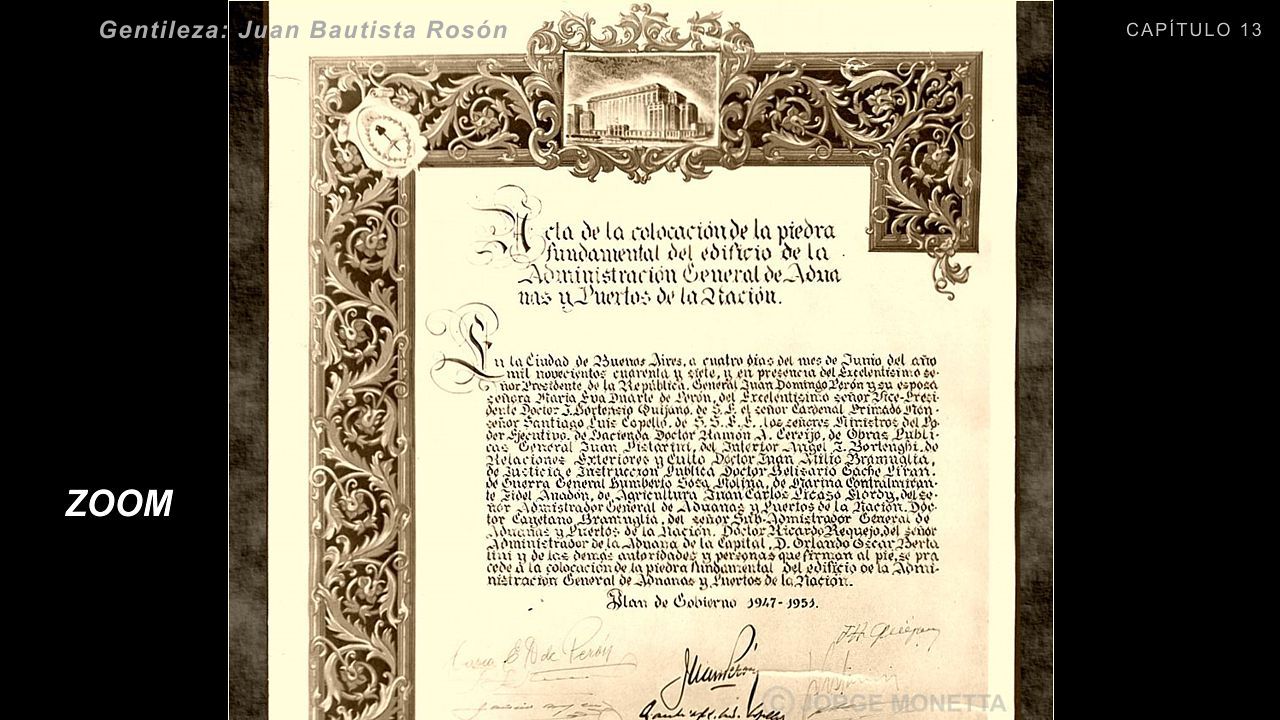 Gentileza: Juan Bautista Rosón
CAPÍTULO 13
Acta de la colocación de la piedra
fundamental del edificio de la
Administración General de Adua
nas y Puertos de la Nación.
En la Ciudad de Buenos Aires, a cuatro días del mes de Junio del año
mil novecientos cuarenta y siete, y en presencia del Excelentísimo se-
ñor Presidente de la República, General Juan Domingo Perón y su esposa
señora María Eva Duarte de Perón, del Excelentísimo señor Vice-Presi
dente Doctor J. Hortensio Quijano, de S. E. el señor Cardenal Primado Mon-
señor Santiago Luis Copello, de S.S. E.E. los señores Ministros del Po-
der Ejecutivo, de Hacienda Doctor Ramón A. Cereijo, de Obras Públi-
cas General Juan Pistarini, del Interior Angel J. Borlenghi, de
Relaciones Exteriores y Culto Doctor Juan Atilio Bramuglia,
de Justicia e Instrucción Pública Doctor Belisario Gache Pirán,
de Guerra General Humberto Sosa Molina, de Marina Contralmiran-
te Fidel Anadón, de Agricultura Juan Carlos Picazo Elordy, del se-
ñor Administrador General de Aduanas y Puertos de la Nación, Doc-
tor Cayetano Bramuglia, del señor Sub-Admistrador General de
Aduanas y Puertos de la Nación, Doctor Ricardo Requejo, del señor
Administrador de la Aduana de la Capital, D. Orlando Oscar Berta
lini y de las demás autoridades y personas que firman al pie, se pro
cede a la colocación de la piedra fundamental del edificio de la Admi-
nistración General de Aduanas y Puertos de la Nación.
Plan de Gobierno 1947-1951.
ZOOM
María E D de Perón
Juan Perón
© JORGE MONETTA